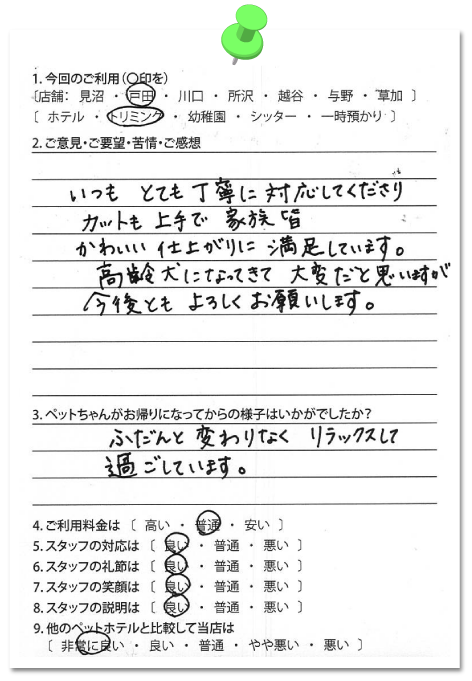 1. 今回のご利用(〇印を)
〔店舗： 見沼 ・ 戸田 ・ 川口 ・ 所沢 ・ 越谷 ・ 与野 ・ 草加 〕
〔 ホテル ・ トリミング ・ 幼稚園 ・ シッター ・ 一時預かり 〕
2.ご意見・ご要望・苦情・ご感想
いつも とても丁寧に対応してくださり
カットも上手で 家族皆
かわいい仕上がりに満足しています。
高齢犬になってきて 大変だと思いますが
今後とも よろしくお願いします。
3.ペットちゃんがお帰りになってからの様子はいかがでしたか?
ふだんと変わりなく リラックスして
過ごしています。
4.ご利用料金は 〔 高い ・ 普通 ・ 安い 〕
5.スタッフの対応は 〔 良い ・ 普通 ・ 悪い 〕
6.スタッフの礼節は 〔 良い ・ 普通 ・ 悪い 〕
7.スタッフの笑顔は 〔 良い ・ 普通 ・ 悪い 〕
8.スタッフの説明は 〔 良い ・ 普通 ・ 悪い 〕
9.他のペットホテルと比較して当店は
〔 非常に良い ・ 良い ・ 普通 ・ やや悪い ・ 悪い 〕